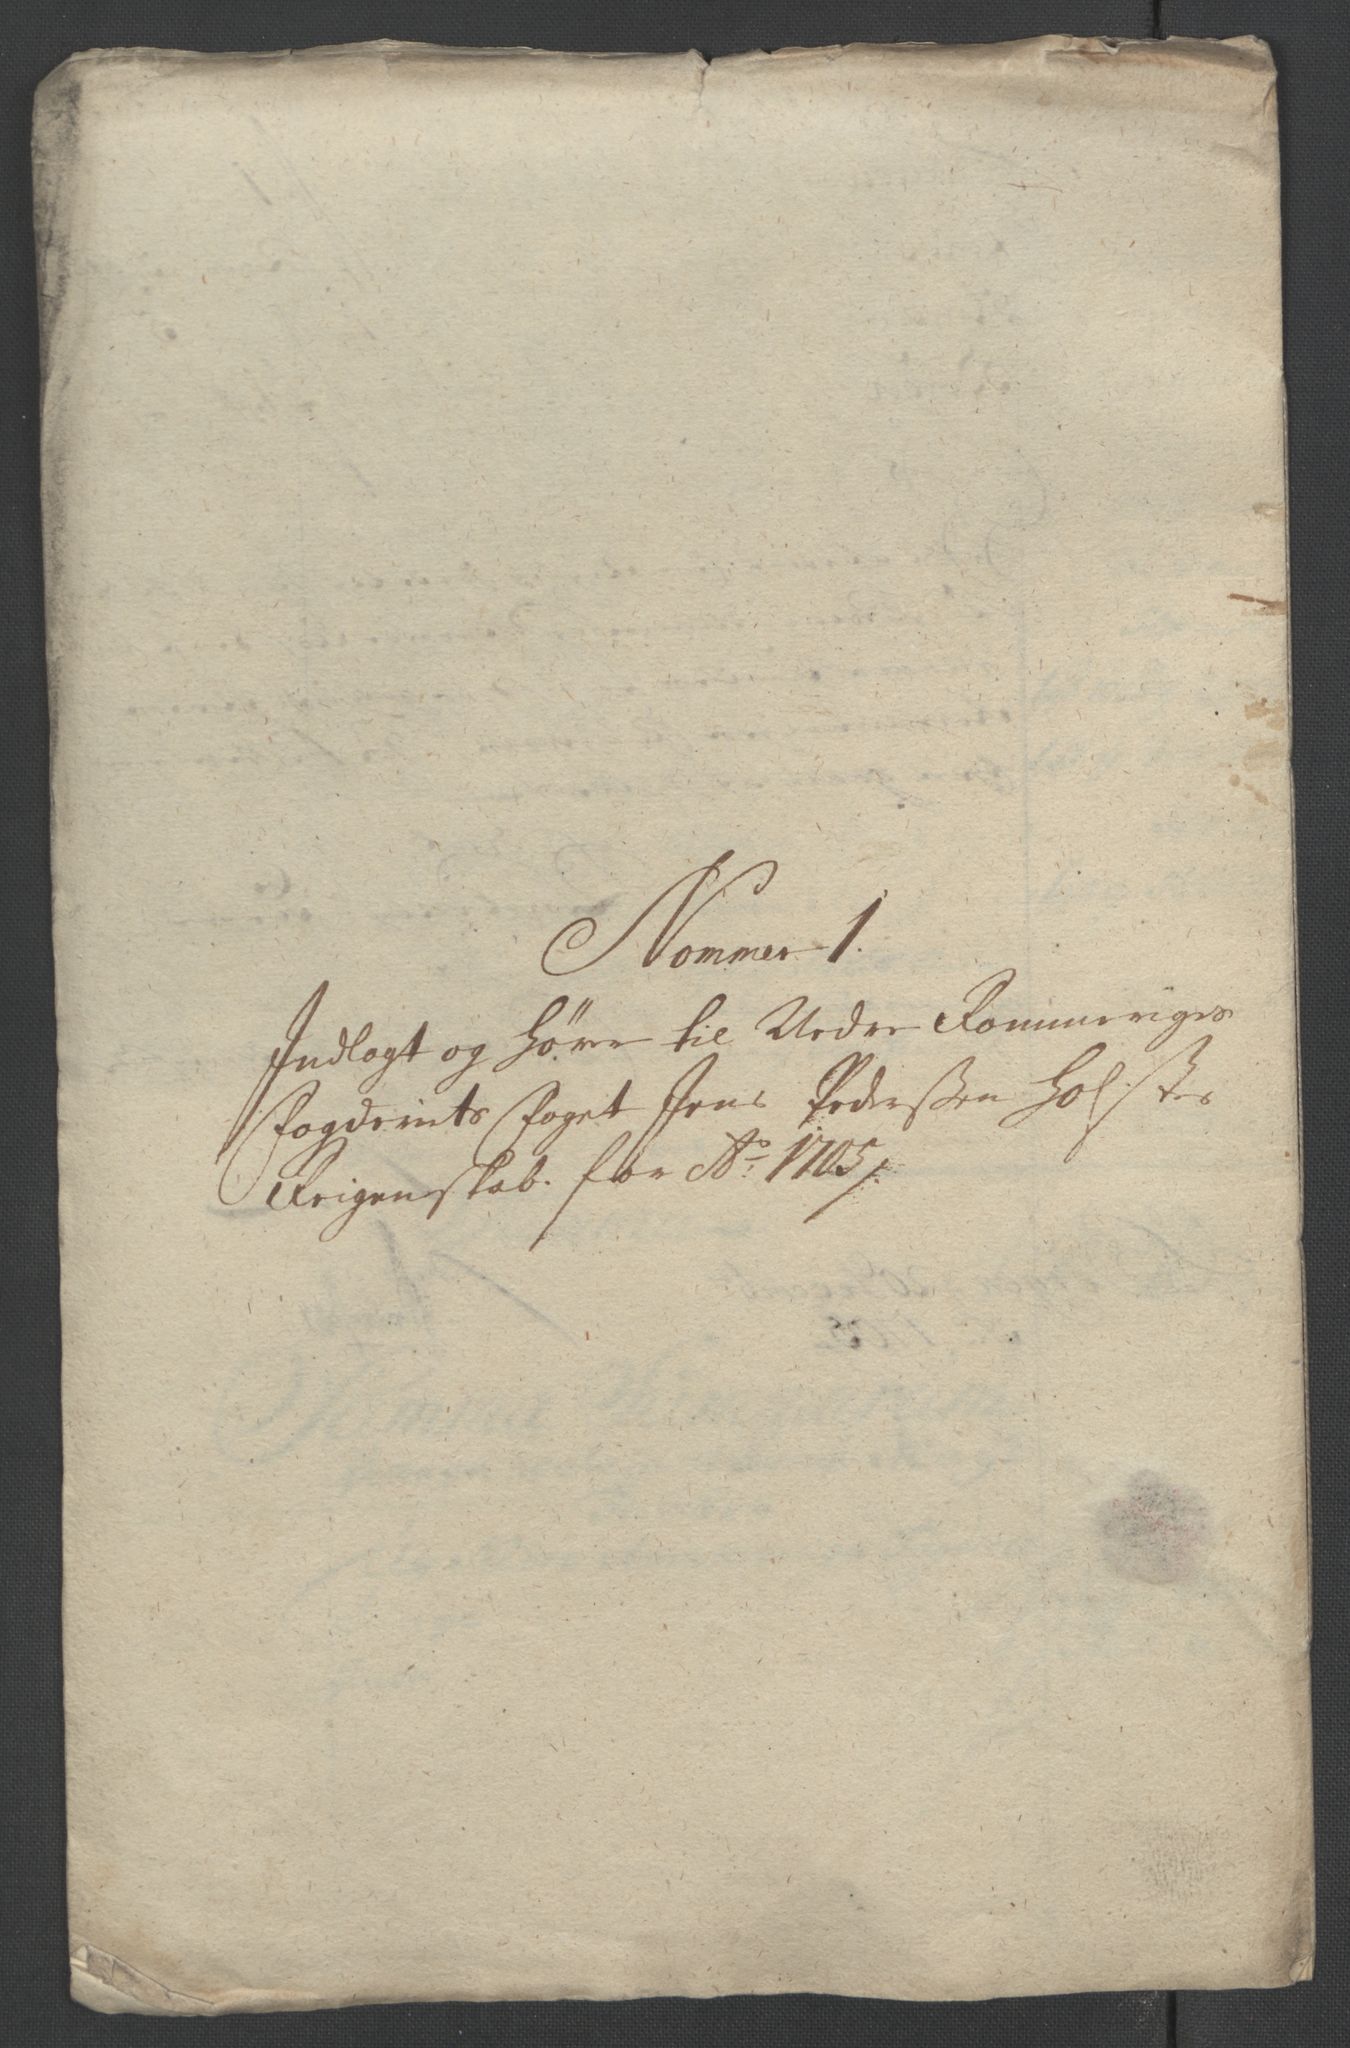 Nommer 1.
Indlagt og hörer til Nedre Rommeriges
Fogderiits Foget Jens Pederssen Holstes
Reigenskab. for Ao: 1705/.